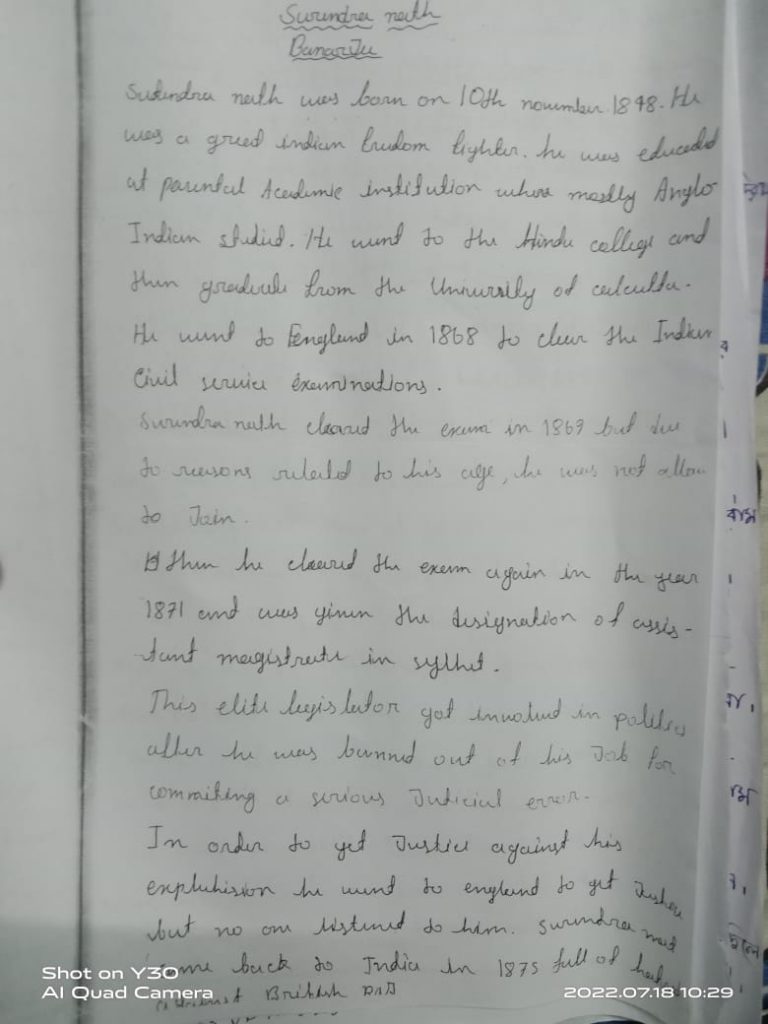 Surendra nath
Banarjee
Surendra nath was born on 10th november 1848. He
was a great indian freedom fighter. he was educated
at parental Academic institution where mostly Anglo
Indian studied. He went to the Hindu college and
then graduate from the University of calcutta.
He went to England in 1868 to clear the Indian
Civil service examinations.
Surendra nath cleared the exam in 1869 but due
to reasons related to his age, he was not allow
to Join.
then he cleared the exam again in the year
1871 and was given the designation of assis-
tant magistrate in sylhet.
This elite legislator got involved in politics
after he was banned out of his Job for
commiting a serious Judicial error.
In order to get Justice against his
he went to england to get Justice
but no one listened to him. Surendra
back to India in 1875 full of
against British
Shot on Y30
AI Quad Camera
2022.07.18 10:29